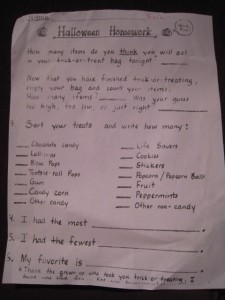 Halloween Homework
How many items do you think you will get
in your trick-or-treat bag tonight?
Now that you have finished trick-or-treating,
empty your bag and count your items.
How many items? Was your guess
too high, too low, or just right?
Sort your treats and write how many:
Chocolate candy
Lollipops
Blow Pops
Tootsie roll Pops
Gum
Candy corn
Other candy
Life Savers
Cookies
Stickers
Popcorn / Popcorn Balls
Fruit
Peppermints
Other non-candy
4. I had the most
5. I had the fewest
5. My favorite is
* Thank the grown up who took you trick or treating,